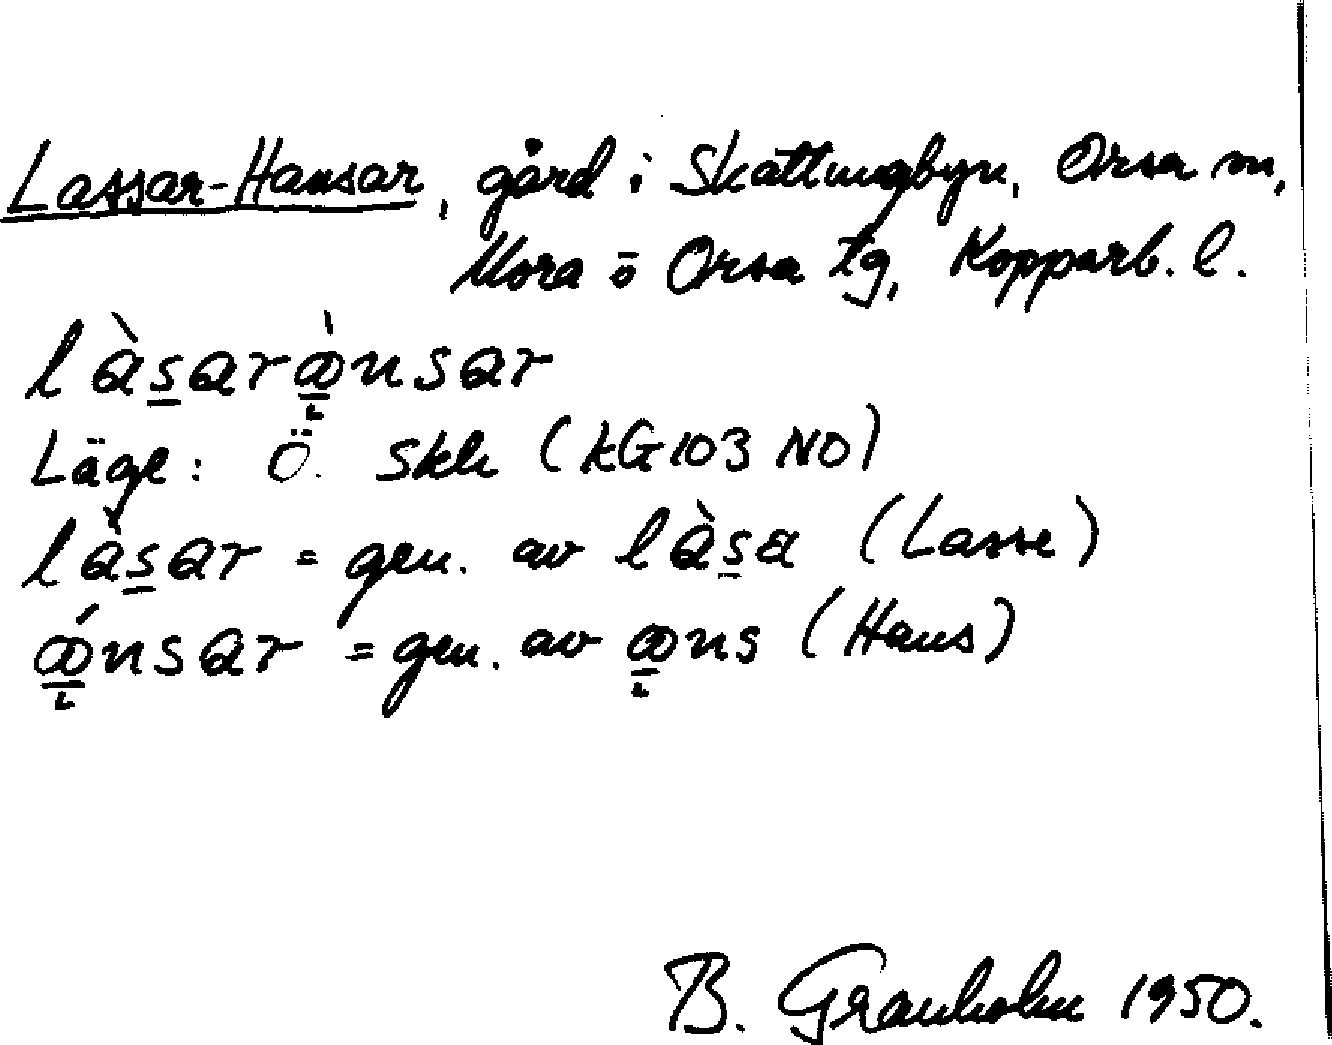 Lassar-Hansar, gård i Skattungbyn, Orsa sn,
Mora o Orsa tg, Kopparb. l.
làs̲arɷ̲̀nsar
Läge: Ö. Skh (kG103 NO)
làs̲ar = gen. av làs̲a (Lasse)
ɷ̲́nsar = gen. av ɷ̲ns (Hans)
B. Granholm 1950.